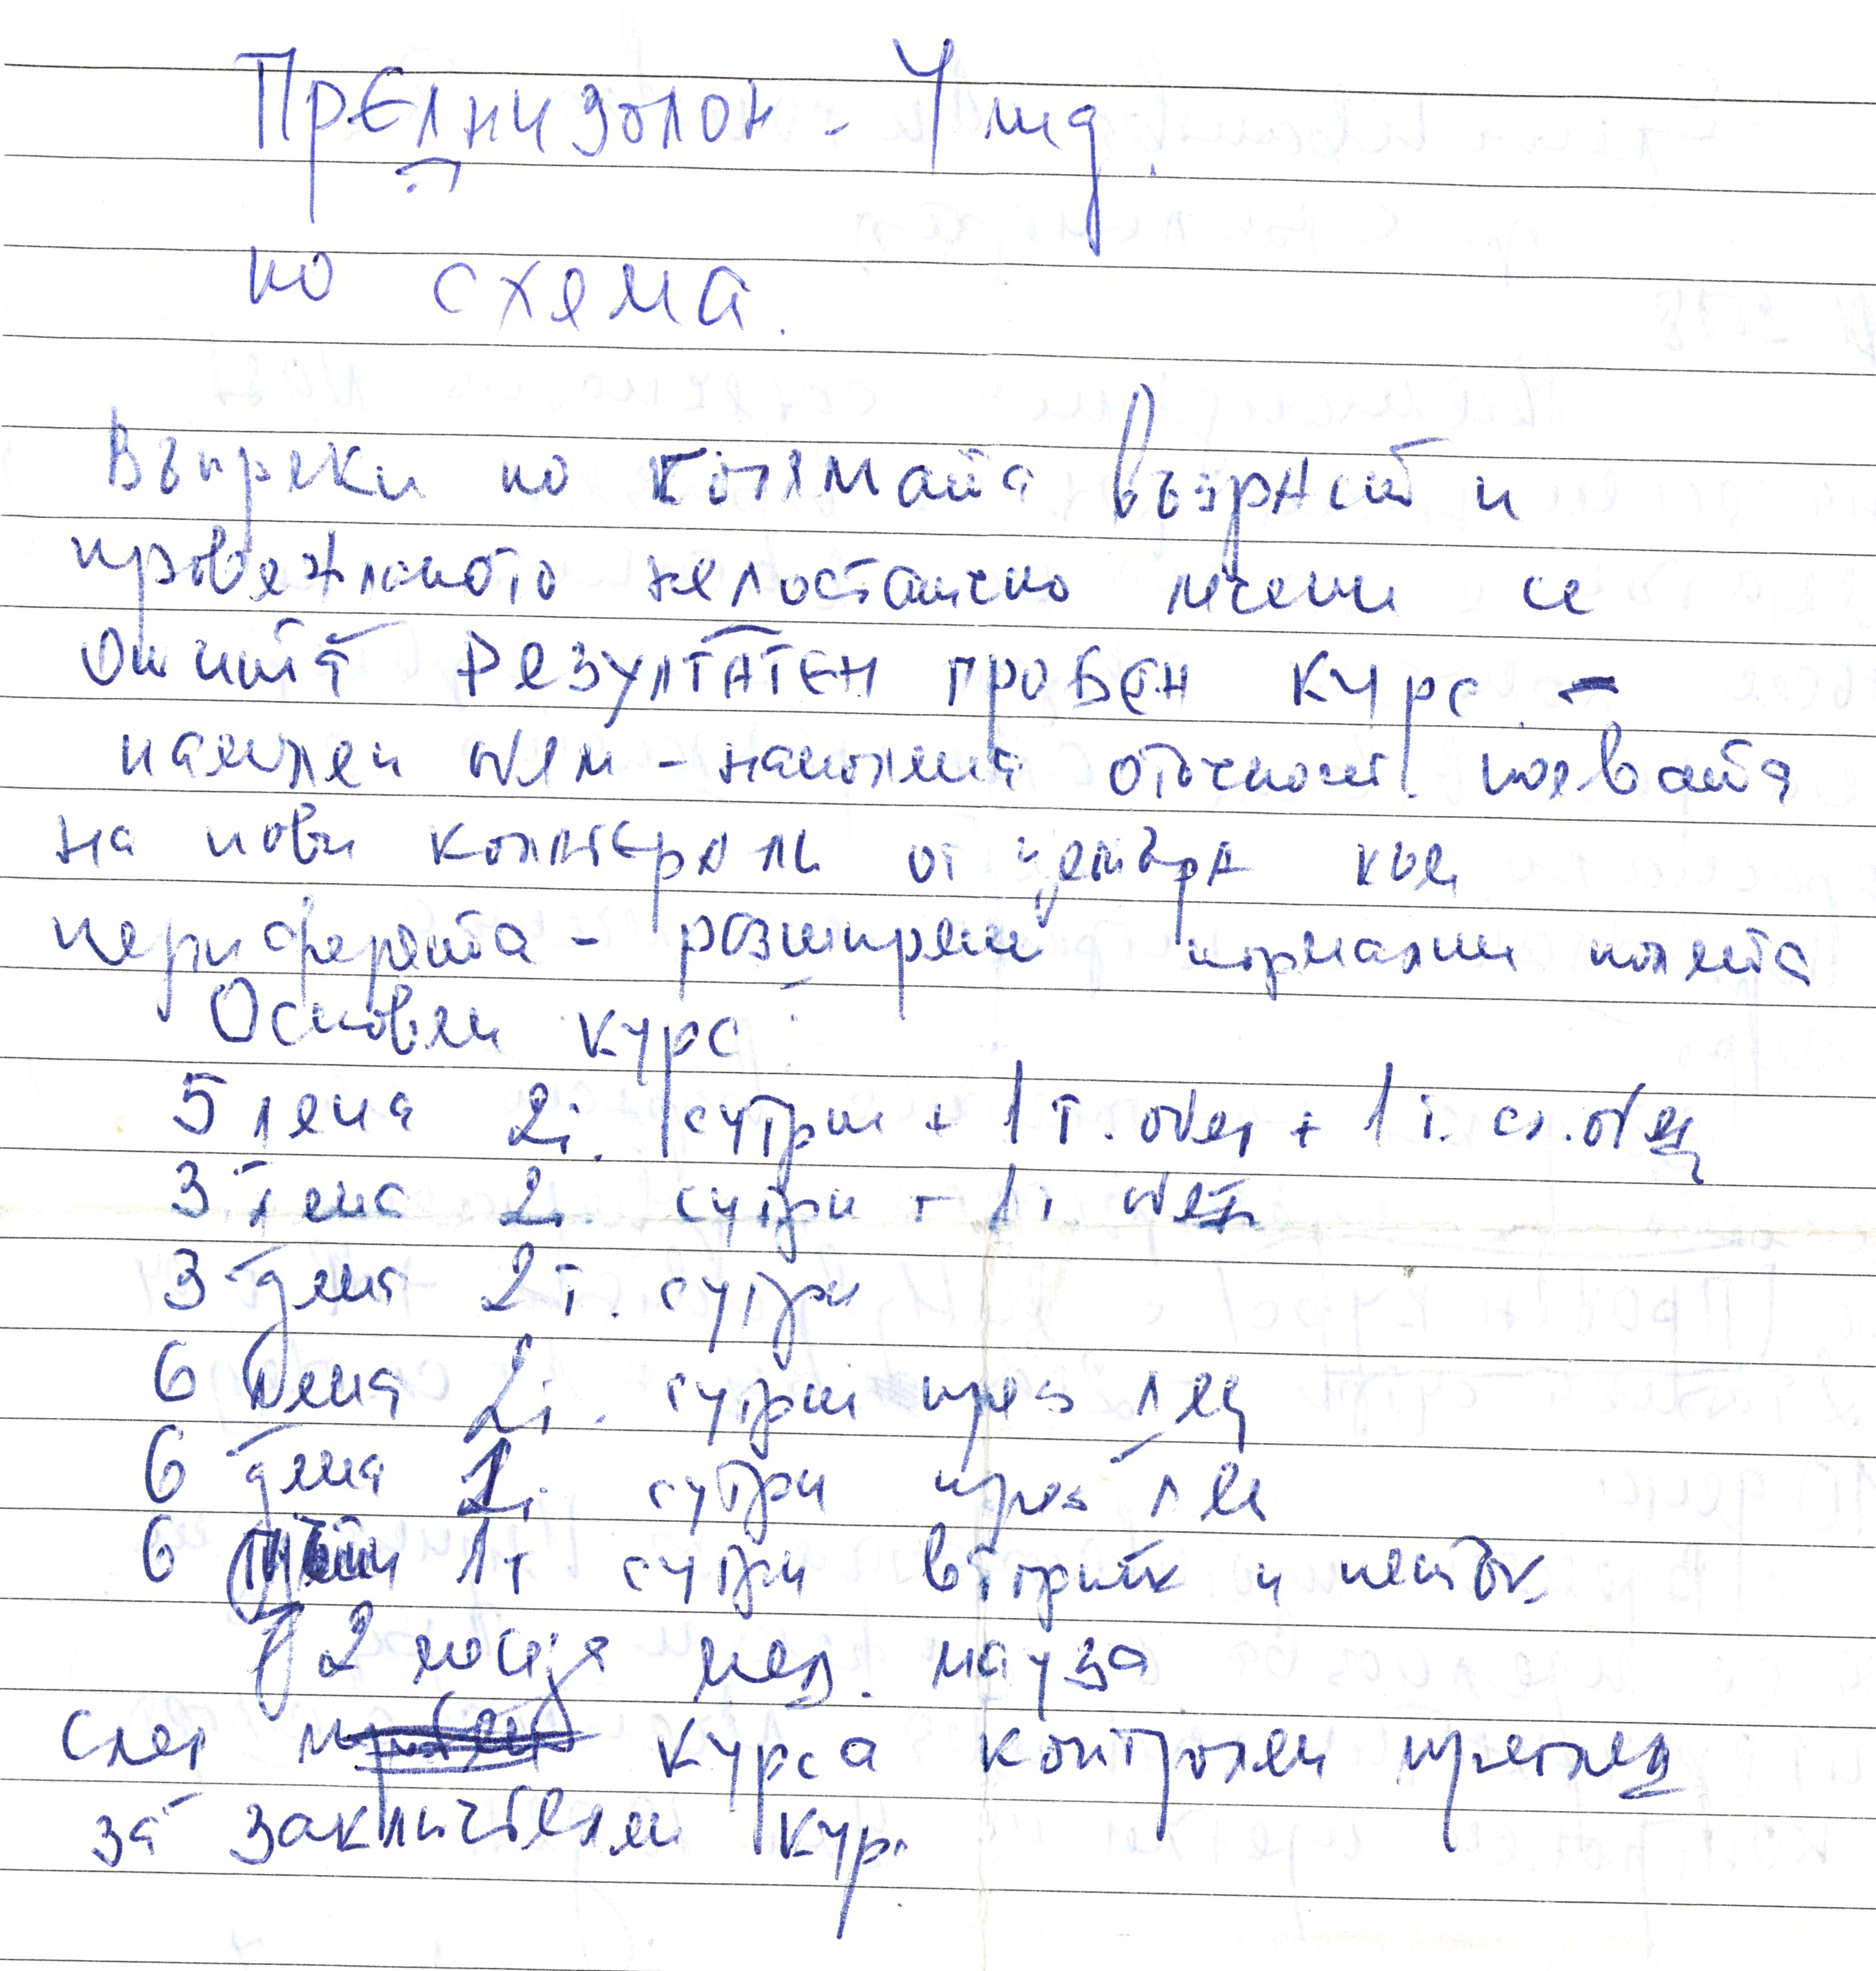 Преднизолон - 4 мг
по схема.
Въпреки по голямата възраст и
провежданото недостатъчно лечение се
отчита РЕЗУЛТАТЕН ПРОБЕН курс -
намален оток - отточност появата
на нови колатерали от центъра към
периферията - разширени нормални полета
Основен курс:
5 дена 2т. сутрин + 1 т. обед + 1 т. сл. обед
3 дена 2т. сутрин + 1т обед
3 дена 2 т. сутрин
6 дена 2т. сутрин през ден
6 дена 1т. сутрин през ден
6 1т сутрин вторник и петък
2 месеца мед. пауза
След курса контролен преглед
за заключителен курс